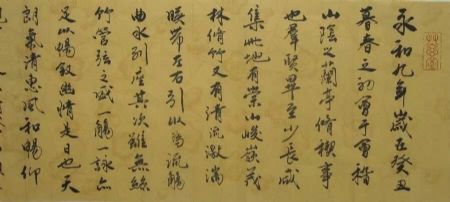 永和九年歲在癸丑
暮春之初會于會稽
山陰之蘭亭脩稧事
也羣賢畢至少長咸
集此地有崇山峻領茂
林脩竹又有清流激湍
暎帶左右引以為流觴
曲水列坐其次雖無絲
竹管弦之盛一觴一詠亦
足以暢敘幽情是日也天
朗氣清惠風和暢仰